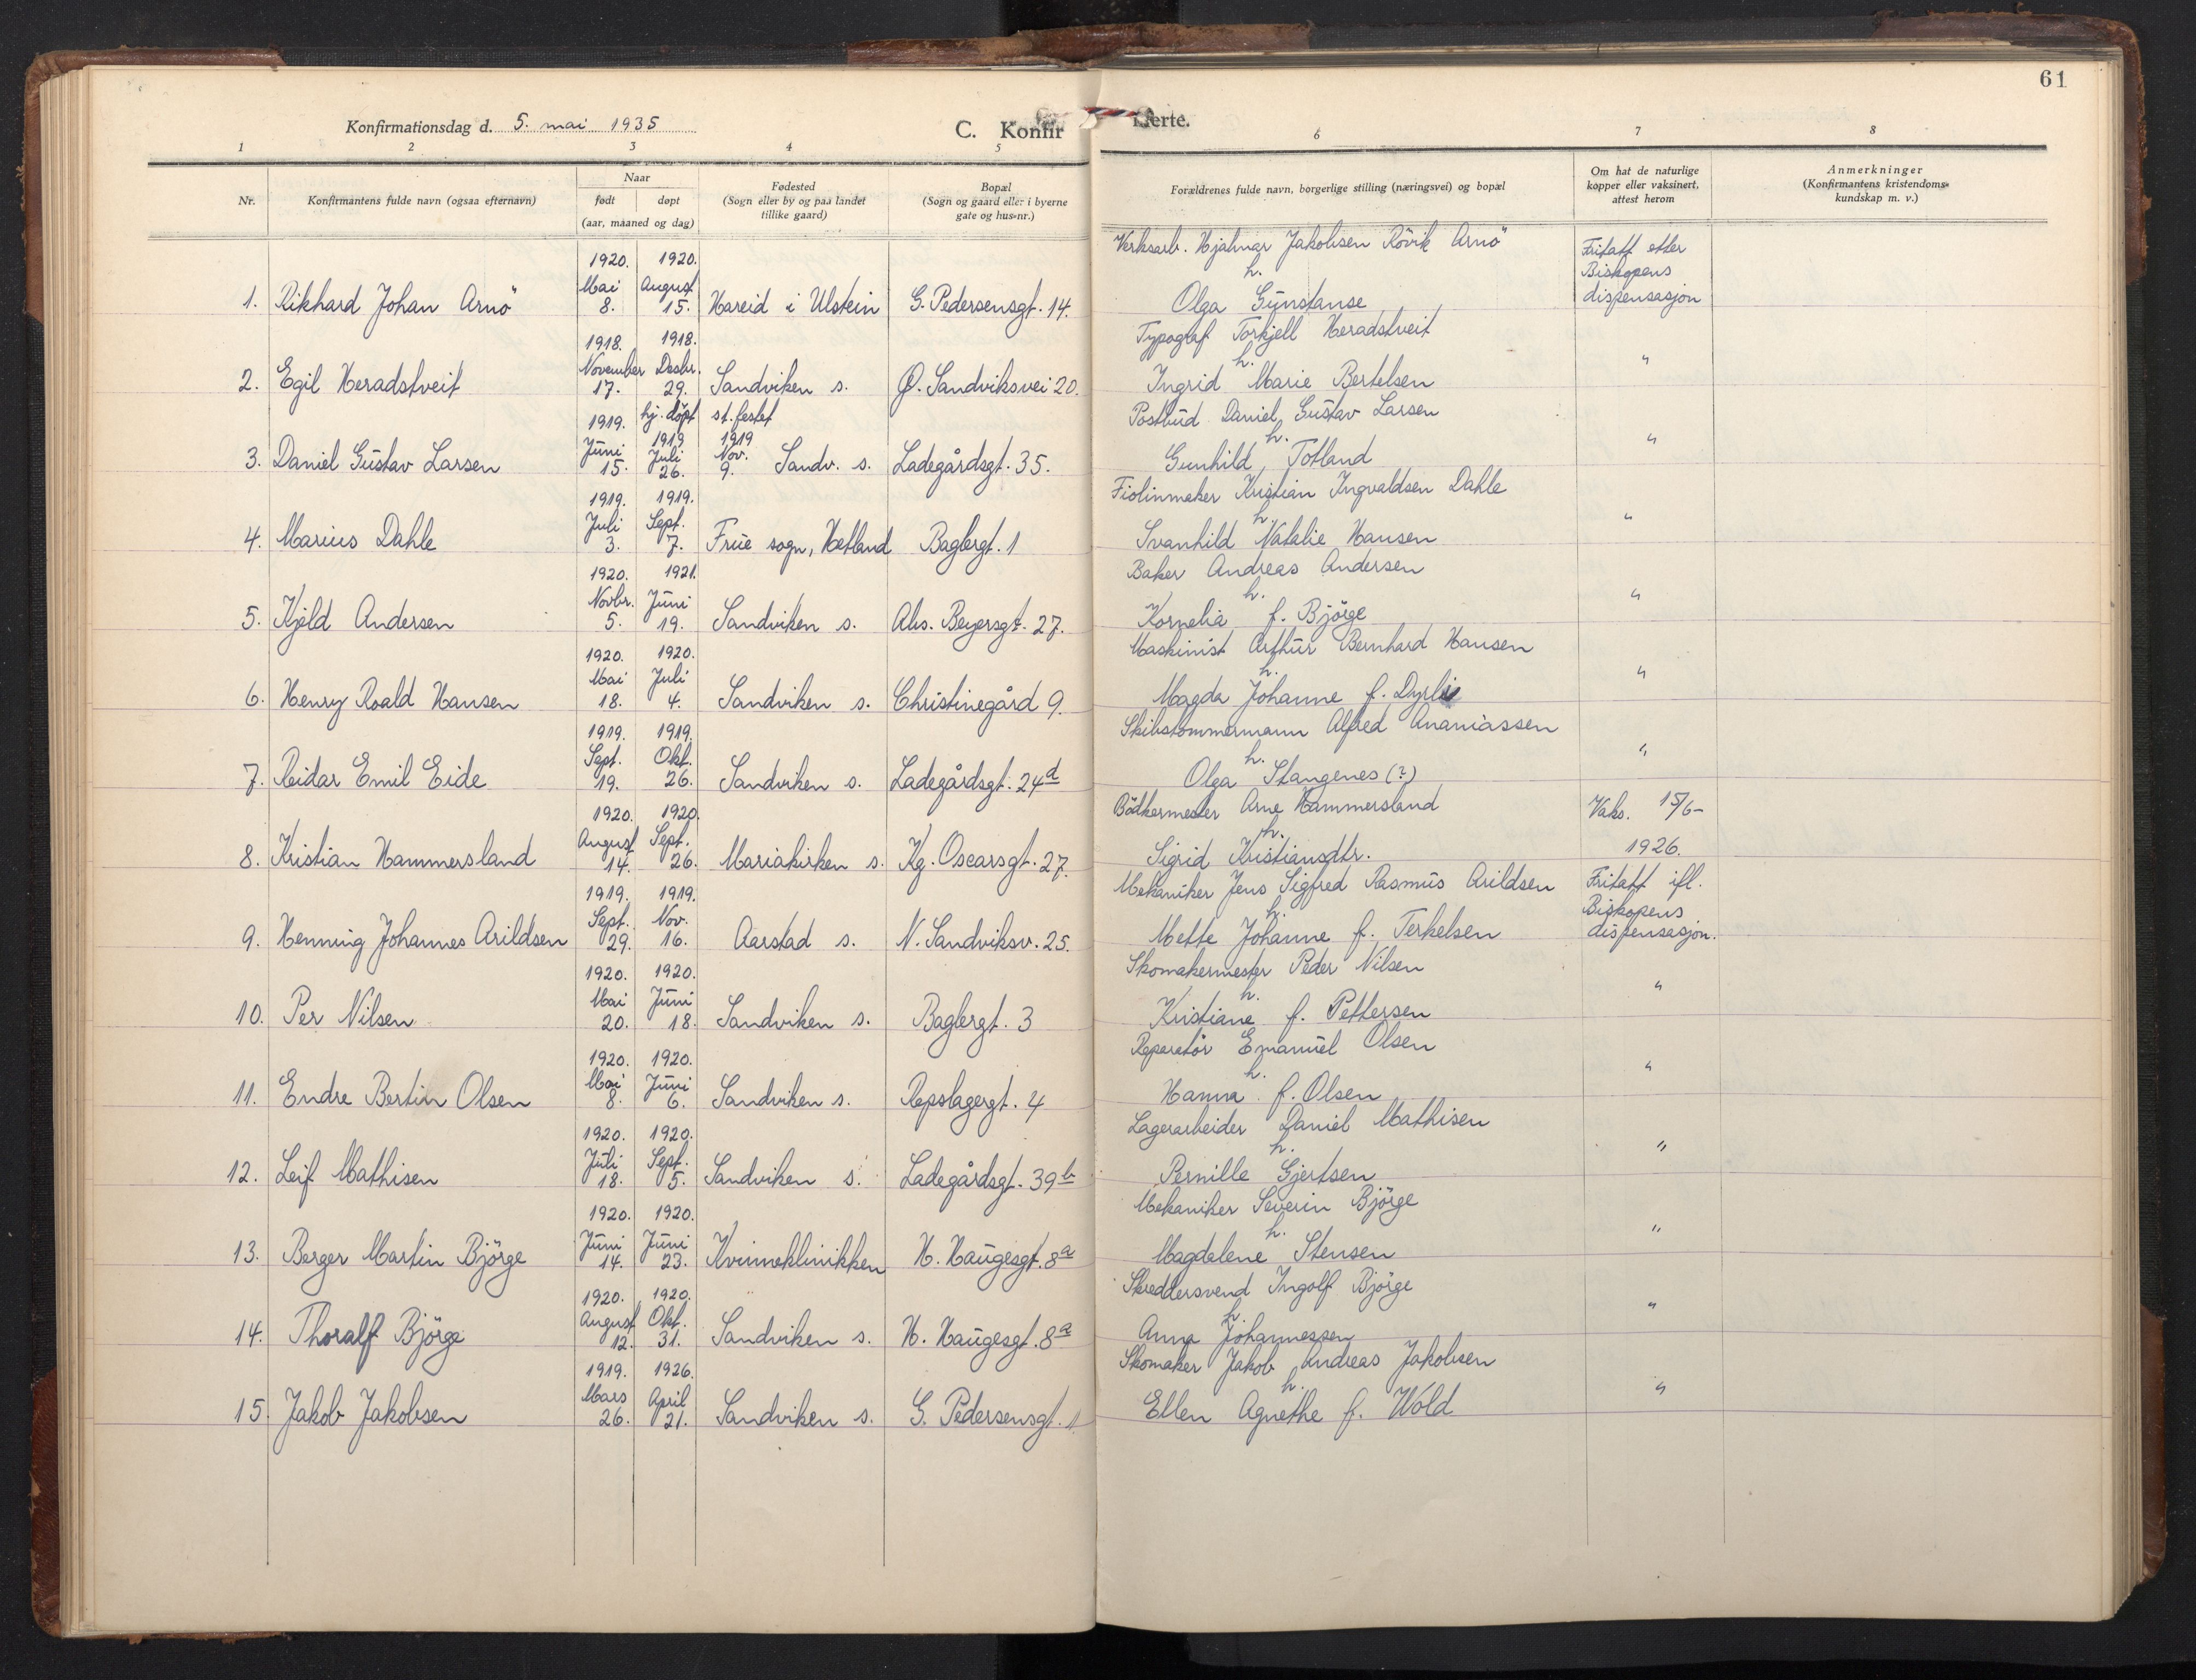 61
Konfirmationsdag d. 5. mai 1935
C. Konfir
merte.
1 2 3 4 5 6 7 8
Nr.
Konfirmantens fulde navn (ogsaa efternavn)
Naar
født døpt
(aar, maaned og dag)
Fødested
(Sogn eller by og paa landet
tillike gaard)
Bopæl
(Sogn og gaard eller i byerne
gate og hus-nr.)
Forældrenes fulde navn, borgerlige stilling (næringsvei) og bopæl
Om hat de naturlige
kopper eller vaksinert,
attest herom
Anmerkninger
(Konfirmantens kristendoms-
kundskap m. v.)
1920. 1920. Verksarb. Hjalmar Jakobsen Rövik Arnö Fritatt etter
Mai August h. Biskopens
1. Rikhard Johan Arnö 8. 15. Hareid i Ulstein G. Pedersensgt. 14. Olga Gunstanse dispensasjon
1918. 1918. Typograf Torkjell Heradstveit
November Desbr. h. "
2. Egil Heradstveit 17. 29. Sandviken s. Ø. Sandviksvei 20. Ingrid Marie Bertelsen
1919. hj. döpt st. festet Postbud Daniel Gustav Larsen
Juni 1919 Juli 1919 Nov. h. "
3. Daniel Gustav Larsen 15. 26. 9. Sandv. s. Ladegårdsgt. 35. Gunhild Totland
1919. 1919. Fiolinmaker Kristian Ingvaldsen Dahle
Juli Sept. h. "
4. Marius Dahle 3. 7. Frue sogn, Hetland Baglergt. 1 Svanhild Natalie Hansen
1920. 1921. Baker Andreas Andersen
Novbr. Juni h. "
5. Kjeld Andersen 5. 19. Sandviken s. Abs. Beyersgt. 27. Kornelia f. Björge
1920. 1920. Maskinist Arthur Bernhard Hansen
Mai Juli h. "
6. Henry Roald Hansen 18. 4. Sandviken s. Christinegård 9. Magda Johanne f. Dyrli
1919. 1919. Skibstömmermann Alfred Ananiassen
Sept. Okt. h. "
7. Reidar Emil Eide 19. 26. Sandviken s. Ladegårdsgt. 24d Olga Stangenes (?)
1920. 1920. Bödkermester Arne Hammersland Vaks. 15/6-
August Sept. h. 1926.
8. Kristian Hammersland 14. 26. Mariakirken s. Kg. Oscarsgt. 27. Sigrid Kristiansdtr.
1919. 1919. Mekaniker Jens Sigfred Rasmus Arildsen Fritatt ifl.
Sept. Nov. h. Biskopens
9. Henning Johannes Arildsen 29. 16. Aarstad s. N. Sandviksv. 25. Mette Johanne f. Terkelsen dispensasjon.
1920. 1920. Skomakermester Peder Nilsen
Mai Juni h. "
10. Per Nilsen 20. 18. Sandviken s. Baglergt. 3 Kristiane f. Pettersen
1920. 1920. Reparatör Emanuel Olsen
Mai Juni h. "
11. Endre Bertin Olsen 8. 6. Sandviken s. Repslagergt. 4 Hanna f. Olsen
1920. 1920. Lagerarbeider Daniel Mathisen
Juli Sept. h. "
12. Leif Mathisen 18. 5. Sandviken s. Ladegårdsgt. 39b Pernille Gjertsen
1920. 1920. Mekaniker Severin Björge
Juni Juni h. "
13. Berger Martin Björge 14. 23. Kvinneklinikken H. Haugesgt. 8a Magdalene Stensen
1920. 1920. Skreddersvend Ingolf Björge
August Okt. h. "
14. Thoralf Björge 12. 31. Sandviken s. H. Haugesgt. 8a Anna Johannessen
1919. 1926. Skomaker Jakob Andreas Jakobsen
Mars April h. "
15. Jakob Jakobsen 26. 21. Sandviken s. G. Pedersensgt. 1 Ellen Agnethe f. Wold